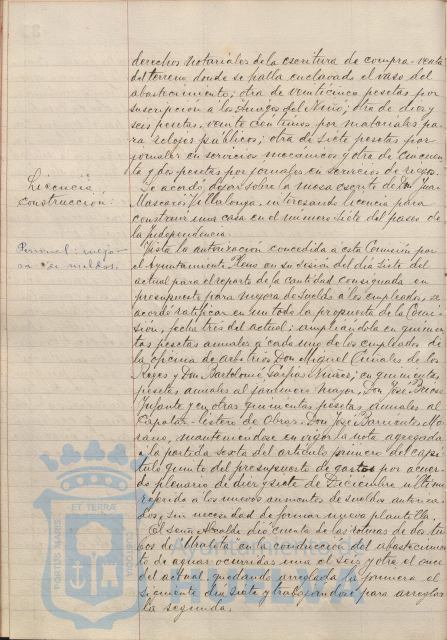 derechos notariales de la escritura de compra-venta
del terreno donde se halla enclavado el vaso del
abastecimiento; otra de veinticinco pesetas por
suscripción a los Amigos del Niño; otra de diez y
seis pesetas, veinte céntimos por materiales pa-
ra relojes públicos; otra de siete pesetas por
jornales en servicios mecánicos y otra de cincuen-
ta y dos pesetas por jornales en servicios de riegos.
Licencia
construcción:
Se acordó dejar sobre la mesa escrito de Don Juan
Mascarós Villalonga, interesando licencia para
construir una casa en el número siete del paseo de
la Independencia.
Personal: mejo-
ra de sueldos.
Vista la autorización concedida a esta Comisión por
el Ayuntamiento Pleno en su sesión del día siete del
actual para el reparto de la cantidad consignada en
presupuesto para mejora de sueldo a los empleados, se
acordó ratificar en un todo la propuesta de la Comi-
sión, fecha tres del actual; ampliándola en quinien-
tas pesetas anuales a cada uno de los empleados de
la oficina de arbitrios Don Miguel Canales de los
Reyes y Don Bartolomé Núñez; en quinientas
pesetas anuales al jardinero mayor, Don José Bueno
Infante y en otras quinientas pesetas anuales al
Capataz-listero de Obras, Don José Barriento Mo-
rano, manteniéndose en vigor la nota agregada
a la partida sexta del artículo primero del capí-
tulo quinto del presupuesto de gastos por acuer-
do plenario de diez y siete de Diciembre último
referido a los nuevos aumentos de sueldos autoriza-
dos, sin necesidad de formar nueva plantilla.
El señor Alcalde dió cuenta de las roturas de dos tu-
bos de Uralita en la conducción del abastecimien-
to de aguas ocurridas una el seis y otra el once
del actual, quedando arreglada la primera el
siguiente día siete y trabajándose para arreglar
la segunda.
PORTUS MARIS
ET TERRAE
CUSTODIA
Ayuntamiento de
HUELVA